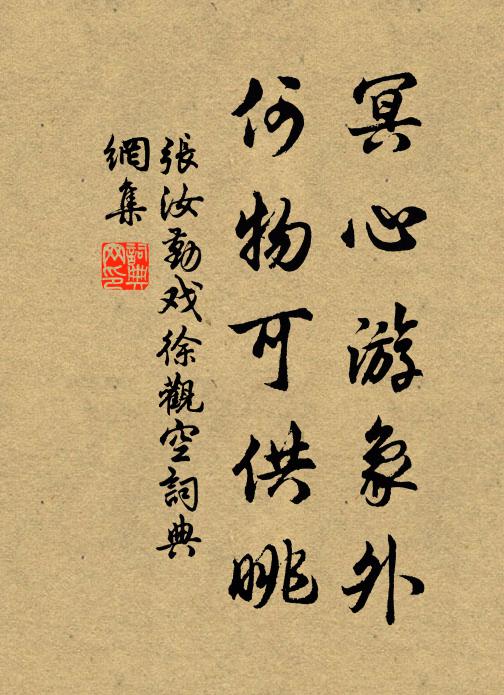 冥心游象外
何物可供眺
張汝勤戏徐觀空詞典
網集
詞典
网印